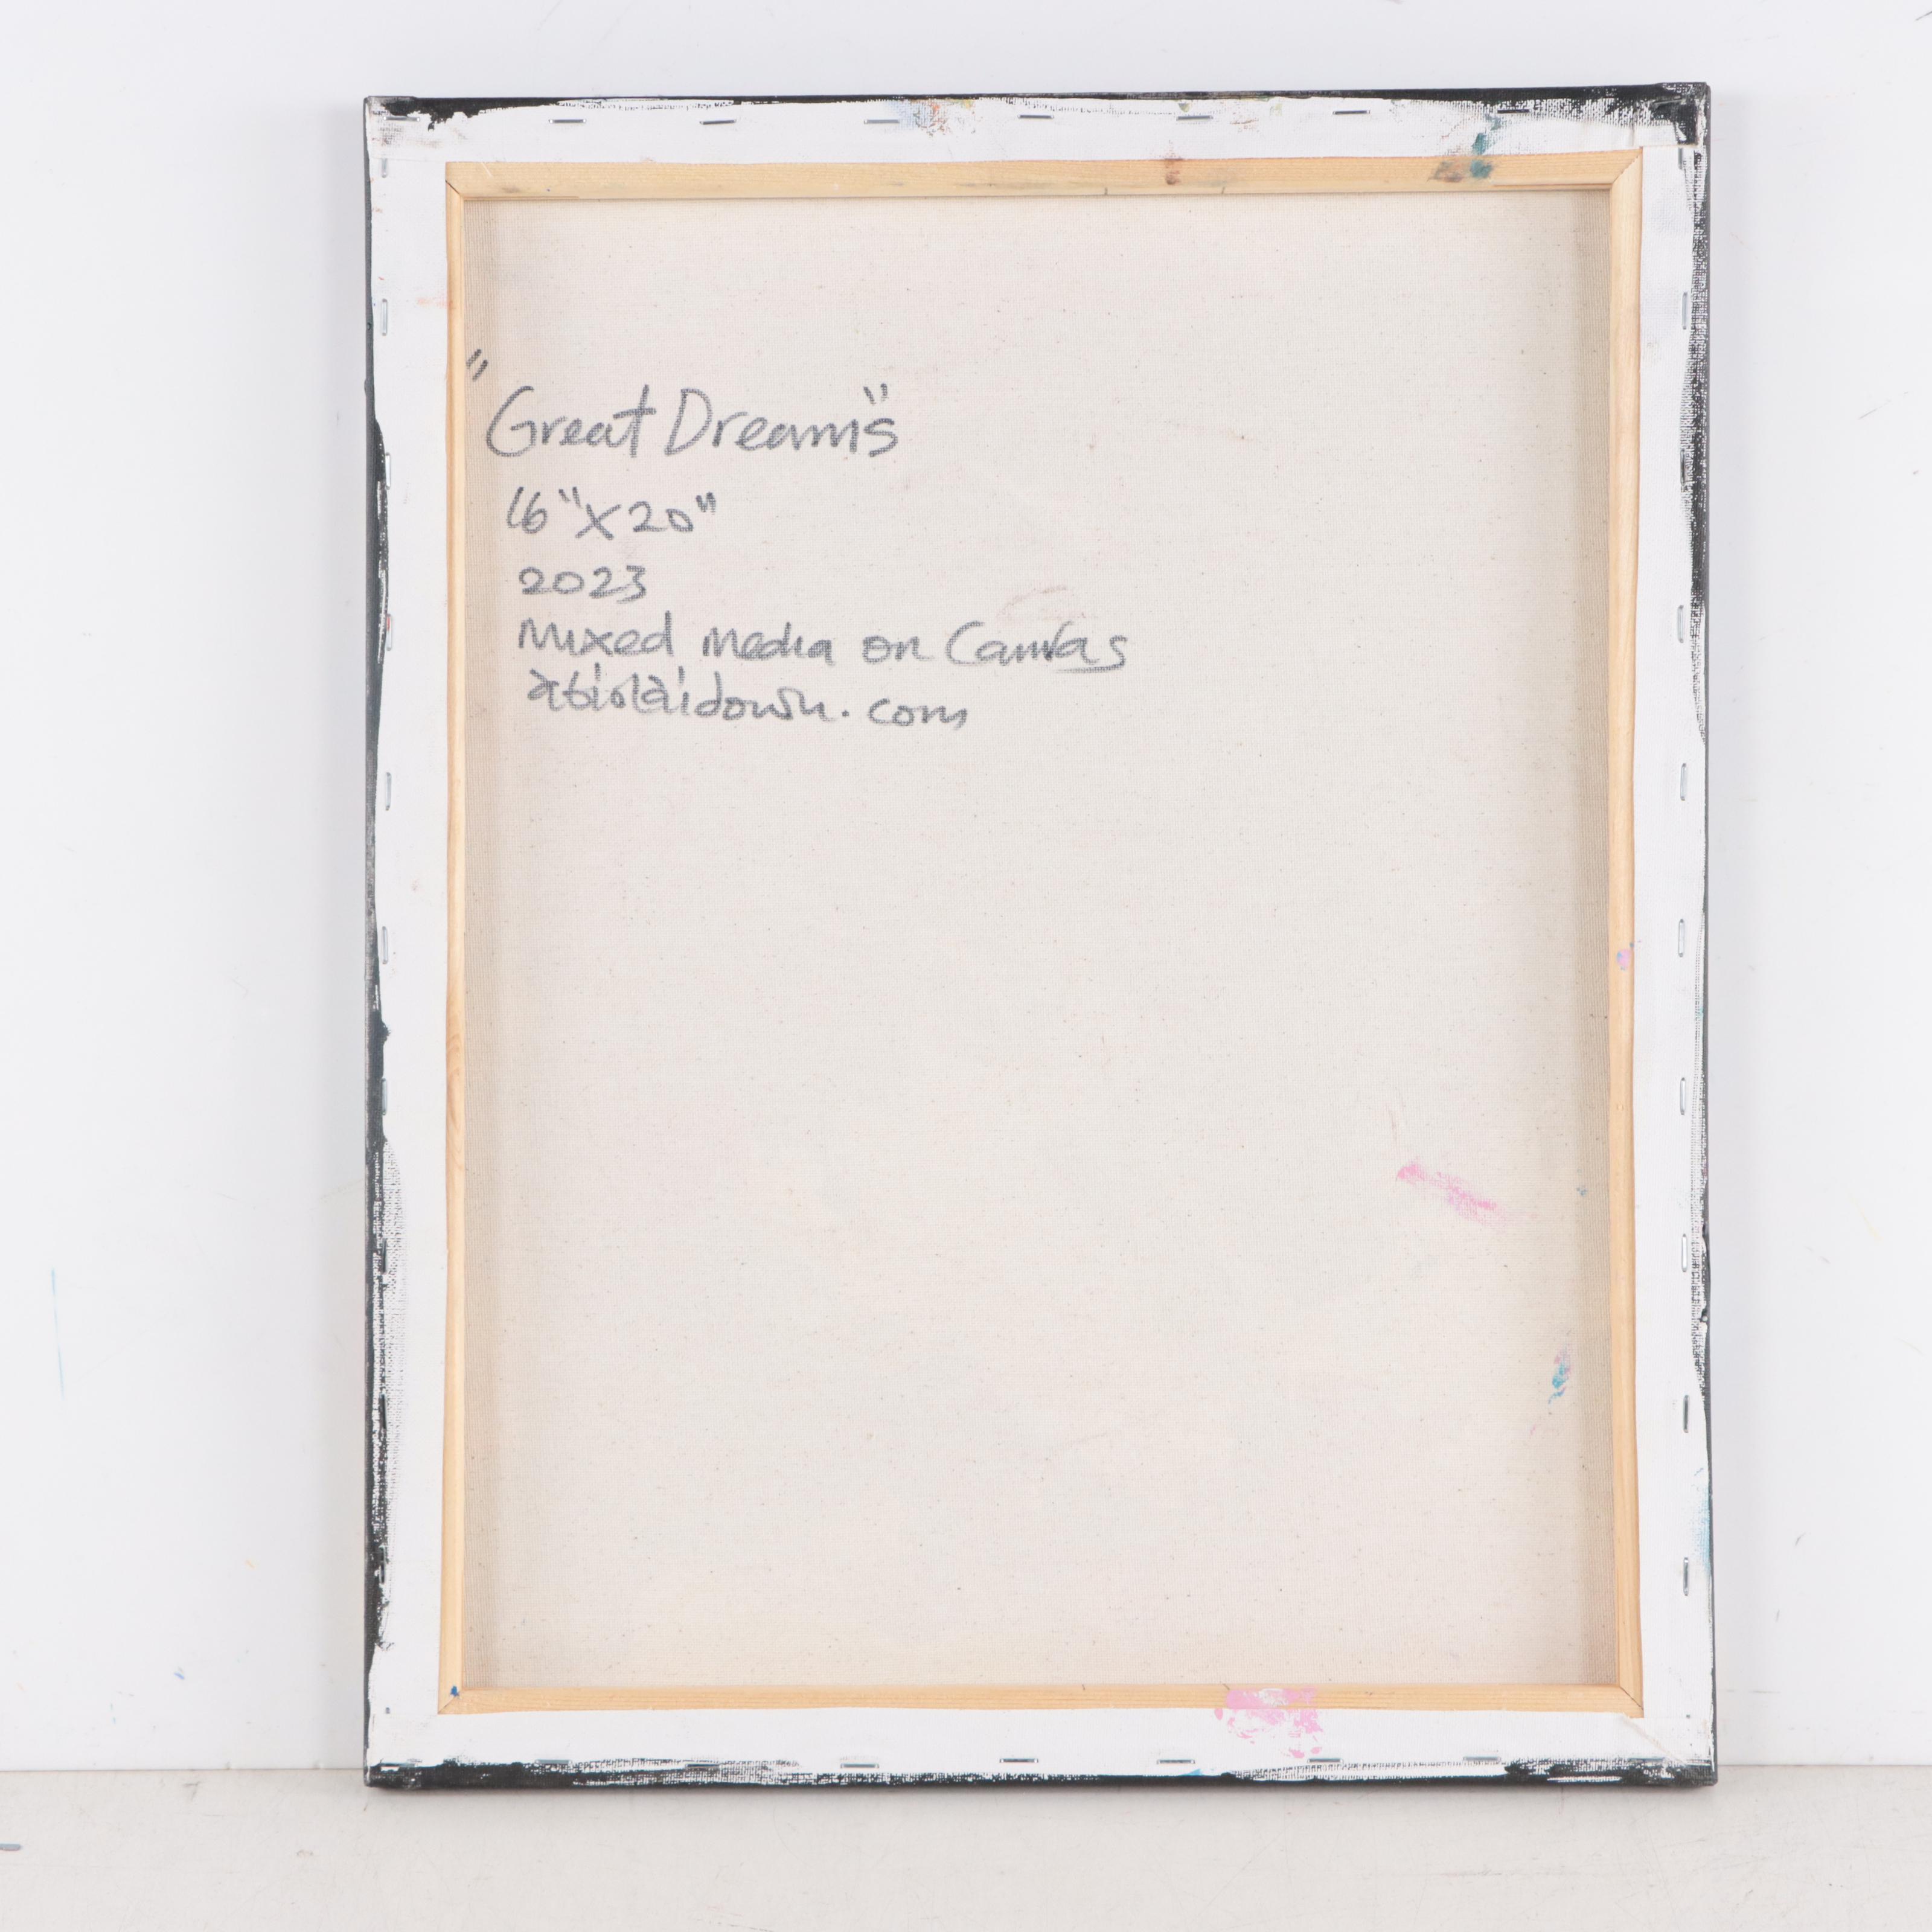 "Great Dreams"
16"X20"
2023
Mixed media on Canvas
abiolaidowu.com